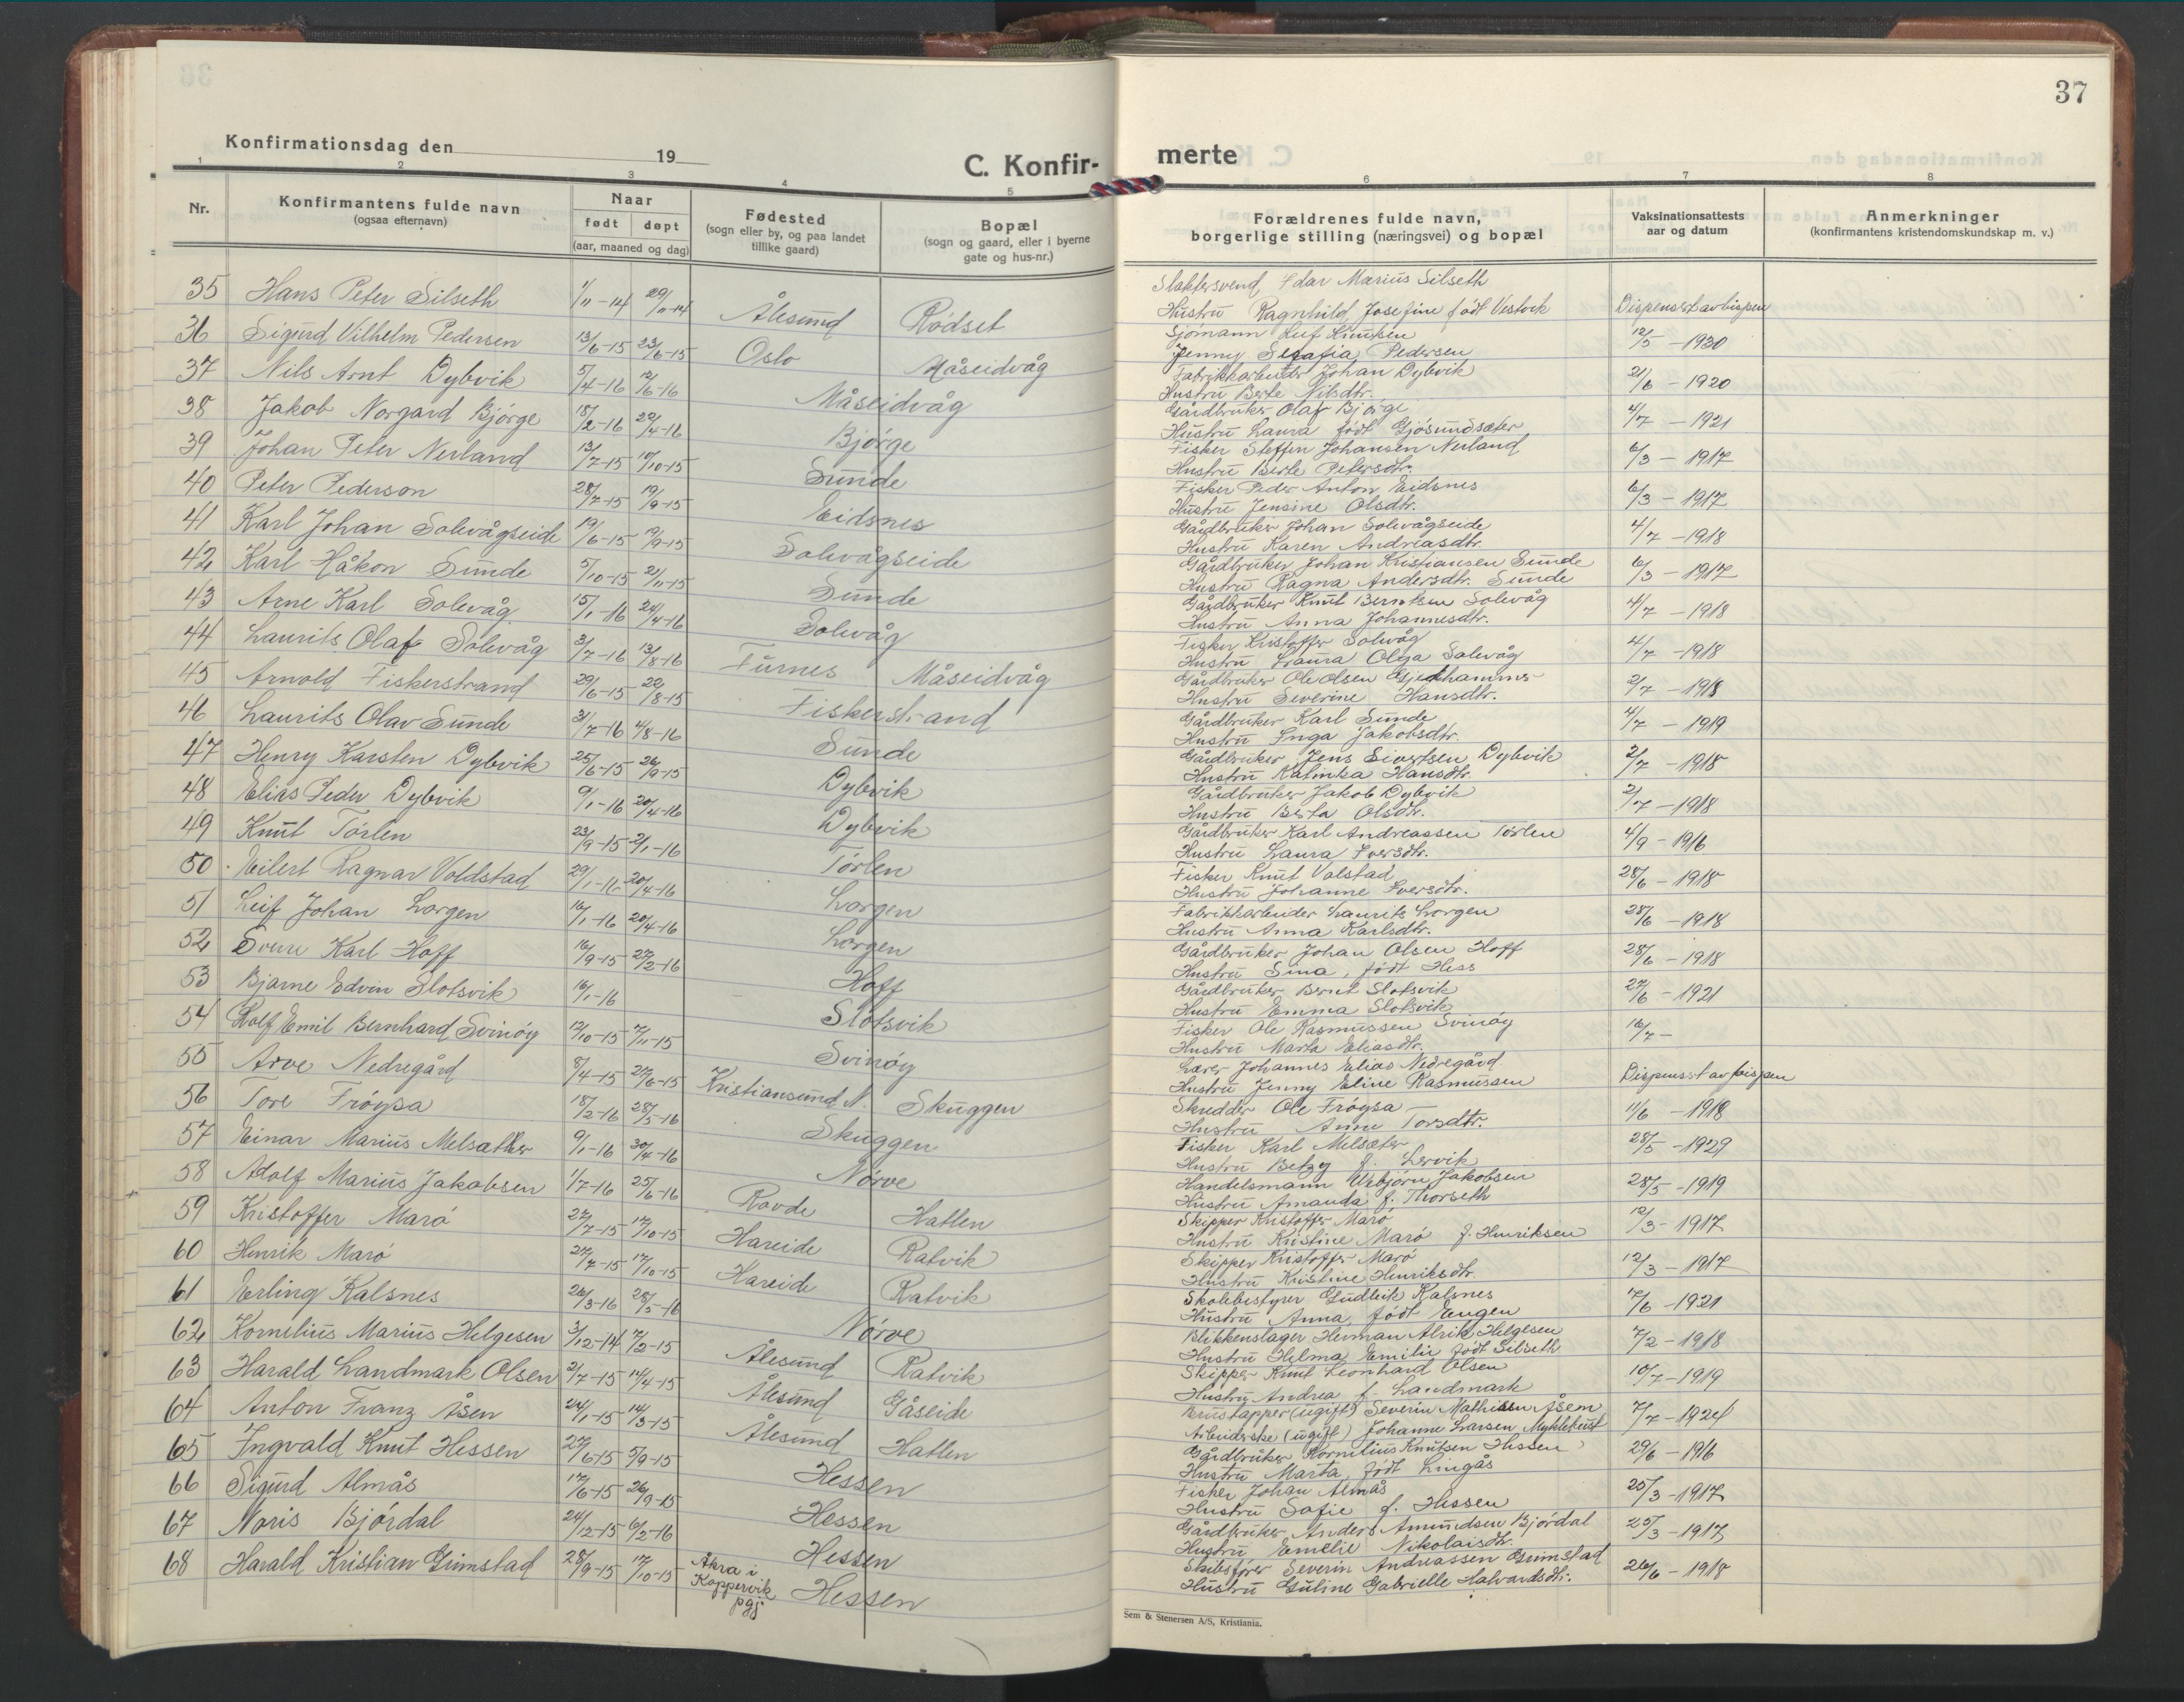 37
Konfirmationsdag den 19
C. Konfir-
merte
1 2 3 4 5 6 7 8
Nr.
Konfirmantens fulde navn
(ogsaa efternavn)
Naar
født døpt
(aar, maaned og dag)
Fødested
(sogn eller by, og paa landet
tillike gaard)
Bopæl
(sogn og gaard, eller i byerne
gate og hus-nr.)
Forældrenes fulde navn,
borgerlige stilling (næringsvei) og bopæl
Vaksinationsattests
aar og datum
Anmerkninger
(konfirmantens kristendomskundskap m. v.)
35 Hans Peter Silseth 1/11-14 29/11-14 Ålesund Rødset
Slaktersvend, Idar Marius Silseth
Hustru Ragnhild, Josefine født Vestvik Dispensert av bispen
36 Sigurd Vilhelm Pedersen 13/6-15 23/6-15 Oslo Måseidvåg
Sjømann Leif Knutsen
Jenny Serafia Pedersen 12/5-1920
37 Nils Arnt Dybvik 5/4-16 12/6-16 Måseidvåg
Fabrikkarbeider Johan Dybvik
Hustru Berte Nilsdtr. 21/6-1920
38 Jakob Norgard Bjørge 18/2-16 20/4-16 Bjørge
Gårdbruker Olaf Bjørge
Hustru Laura født Gjøsundsæter 4/7-1921
39 Johan Peter Nerland 13/7-15 10/10-15 Sunde
Fisker Steffen Johansen Nerland
Hustru Berte Petersdtr. 6/3-1917
40 Peter Pederson 28/7-15 19/9-15 Eidsnes
Fisker Peder Anton Eidsnes
Hustru Jensine Olsdtr. 6/3-1917
41 Karl Johan Solevågseide 19/6-15 19/9-15 Solevågseide
Gårdbruker Johan Solevågseide
Hustru Karen Andreasdtr. 4/7-1918
42 Karl Håkon Sunde 5/10-15 21/11-15 Sunde
Gårdbruker Johan Kristiansen Sunde
Hustru Ragna Andersdtr. Sunde 6/3-1917
43 Arne Karl Solevåg 15/1-16 24/4-16 Solevåg
Gårdbruker Knut Berntsen Solevåg
Hustru Anna Johannesdtr. 4/7-1918
44 Laurits Olaf Solevåg 3/7-16 13/8-16 Furnes Måseidvåg
Fisker Kristoffer Solevåg
Hustru Laura Olga Solevåg 4/7-1918
45 Arnold Fiskerstrand 29/6-15 22/8-15 Fiskerstrand
Gårdbruker Ole Olsen
Hustru Severine Hansdtr. 2/7-1918
46 Laurits Olav Sunde 31/7-16 4/8-16 Sunde
Gårdbruker Karl Sunde
Hustru Inga Jakobsdtr. 4/7-1919
47 Henry Karsten Dybvik 25/6-15 26/9-15 Dybvik
Gårdbruker Jens Sivertsen Dybvik
Hustru Katinka Hansdtr. 2/7-1918
48 Elias Peder Dybvik 9/1-16 20/4-16 Dybvik
Gårdbruker Jakob Dybvik
Hustru Berta Olsdtr. 2/7-1918
49 Knut Tørlen 23/9-15 2/1-16 Tørlen
Gårdbruker Karl Andreassen Tørlen
Hustru Laura Iversdtr. 4/9-1916
50 Eilert Ragnar Voldstad 29/1-16 20/4-16 Lorgen
Fisker Knut Valstad
Hustru Johanne Iversdtr. 28/6-1918
51 Leif Johan Lorgen 16/1-16 20/4-16 Lorgen
Fabrikkarbeider Laurits Lorgen
Hustru Anna Karlsdtr. 28/6-1918
52 Sverre Karl Hoff 16/9-15 27/2-16 Hoff
Gårdbruker Johan Olsen Hoff
Hustru Sina, født Hess 28/6-1918
53 Bjarne Edvin Slotsvik 16/1-16 Slotsvik
Gårdbruker Bernt Slotsvik
Hustru Emma Slotsvik 27/6-1921
54 Rolf Emil Bernhard Svinøy 12/10-15 7/11-15 Svinøy
Fisker Ole Rasmussen Svinøy
Hustru Marta Eliasdtr. 16/7-
55 Arve Nedregård 8/4-15 27/6-15 Kristiansund N. Skuggen
Lærer Johannes Elias Nedregård
Hustru Jenny Eline Rasmussen Dispensert av bispen
56 Tore Frøysa 18/2-16 28/5-16 Skuggen
Skredder Ole Frøysa
Hustru Anne Torsdtr. 11/6-1918
57 Einar Marius Melsæther 9/1-16 30/4-16 Nørve
Fisker Karl Melsæter
Hustru Betzy f. Lervik 28/5-1929
58 Adolf Marius Jakobsen 1/7-16 25/6-16 Rovde Hatlen
Handelsmann Jakobsen
Hustru Amanda f. Thorseth 28/5-1919
59 Kristoffer Marø 27/7-15 17/10-15 Hareide Ratvik
Skipper Kristoffer Marø
Hustru Kristine Marø f. Henriksen 12/3-1917
60 Henrik Marø 27/7-15 17/10-15 Hareide Ratvik
Skipper Kristoffer Marø
Hustru Kristine Henriksdtr. 12/3-1917
61 Erling Kalsnes 26/3-16 28/5-16 Nørve
Skolebestyrer Gudleik Kalsnes
Hustru Anna, født Engen 7/6-1921
62 Kornelius Marius Helgesen 3/12-14 7/2-15 Ålesund Ratvik
Blikkenslager Herman Alrik Helgesen
Hustru Helma Emilie født Silseth 7/2-1918
63 Harald Landmark Olsen 2/7-15 14/4-15 Ålesund Gåseide
Skipper Knut Leonhard Olsen
Hustru Andrea f. Landmark 10/7-1919
64 Anton Franz Åsen 24/1-15 14/3-15 Ålesund Hatlen
Brustapper (ugift) Severin Mathisen Åsem
Arbeiderske (ugift) Johanne Larsen Myklebust 7/7-1924
65 Ingvald Knut Hessen 27/6-15 5/9-15 Hessen
Gårdbruker Kornelius Knutsen Hessen
Hustru Marta, født Lingås 29/6-1916
66 Sigurd Almås 17/6-15 26/9-15 Hessen
Fisker Johan Almås
Hustru Sofie f. Hessen 25/3-1917
67 Noris Bjørdal 24/12-15 6/2-16 Hessen
Gårdbruker Anders Amundsen Bjørdal
Hustru Emelie Nikolaisdtr. 25/3-1917
68 Harald Kristian Grimstad 28/9-15 17/10-15 Åkra i Koppervik pgj Hessen
Skibsfører Severin Andreassen Grimstad
Hustru Guline Gabrielle Halvardsdtr. 26/6-1918
Sem & Stenersen A/S, Kristiania.